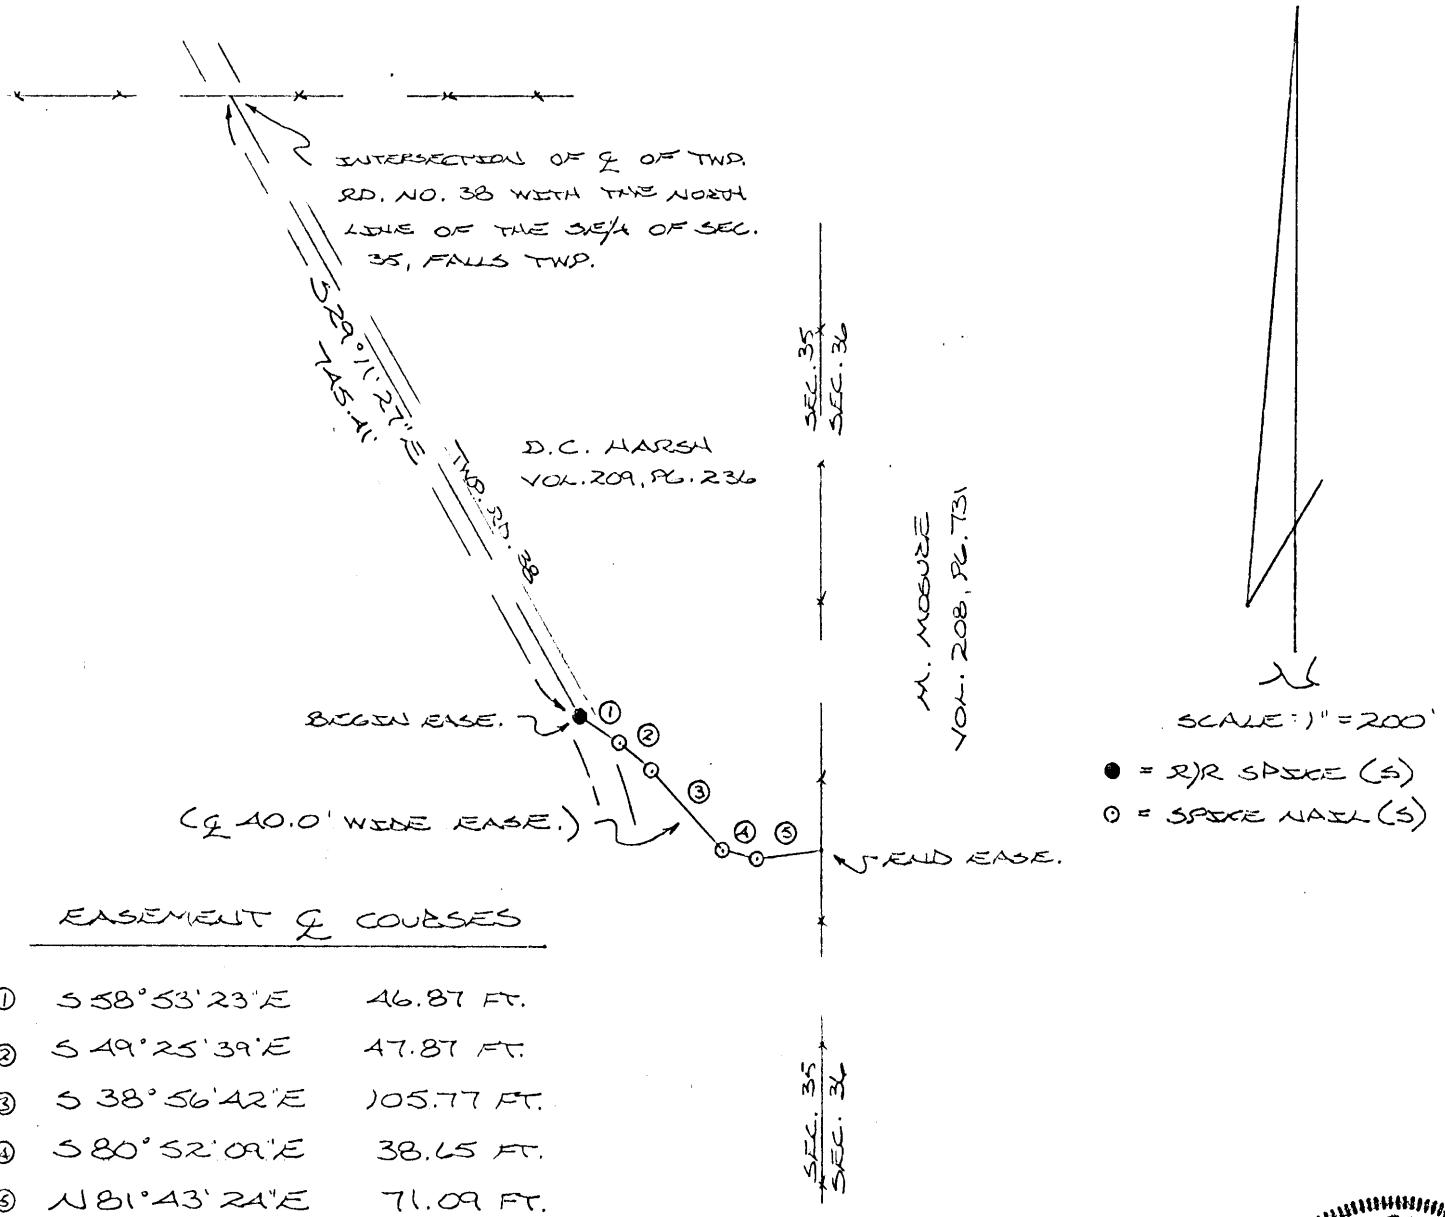 INTERSECTION OF ℄ OF TWP.
RD. NO. 38 WITH THE NORTH
LINE OF THE SE/4 OF SEC.
35, FALLS TWP.
S29°11'27"E
745.41'
TWP. RD. 38
D.C. HARSH
VOL. 209, PG. 236
SEC. 35
SEC. 36
M. MOSURE
VOL. 208, PG. 731
N
SCALE: 1" = 200'
● = R/R SPIKE (S)
○ = SPIKE NAIL (S)
BEGIN EASE.
① ② ③ ④ ⑤
(℄ 40.0' WIDE EASE.)
END EASE.
EASEMENT ℄ COURSES
① S 58°53'23"E 46.87 FT.
② S 49°25'39"E 47.87 FT.
③ S 38°56'42"E 105.77 FT.
④ S 80°52'09"E 38.65 FT.
⑤ N 81°43'24"E 71.09 FT.
SEC. 35
SEC. 36